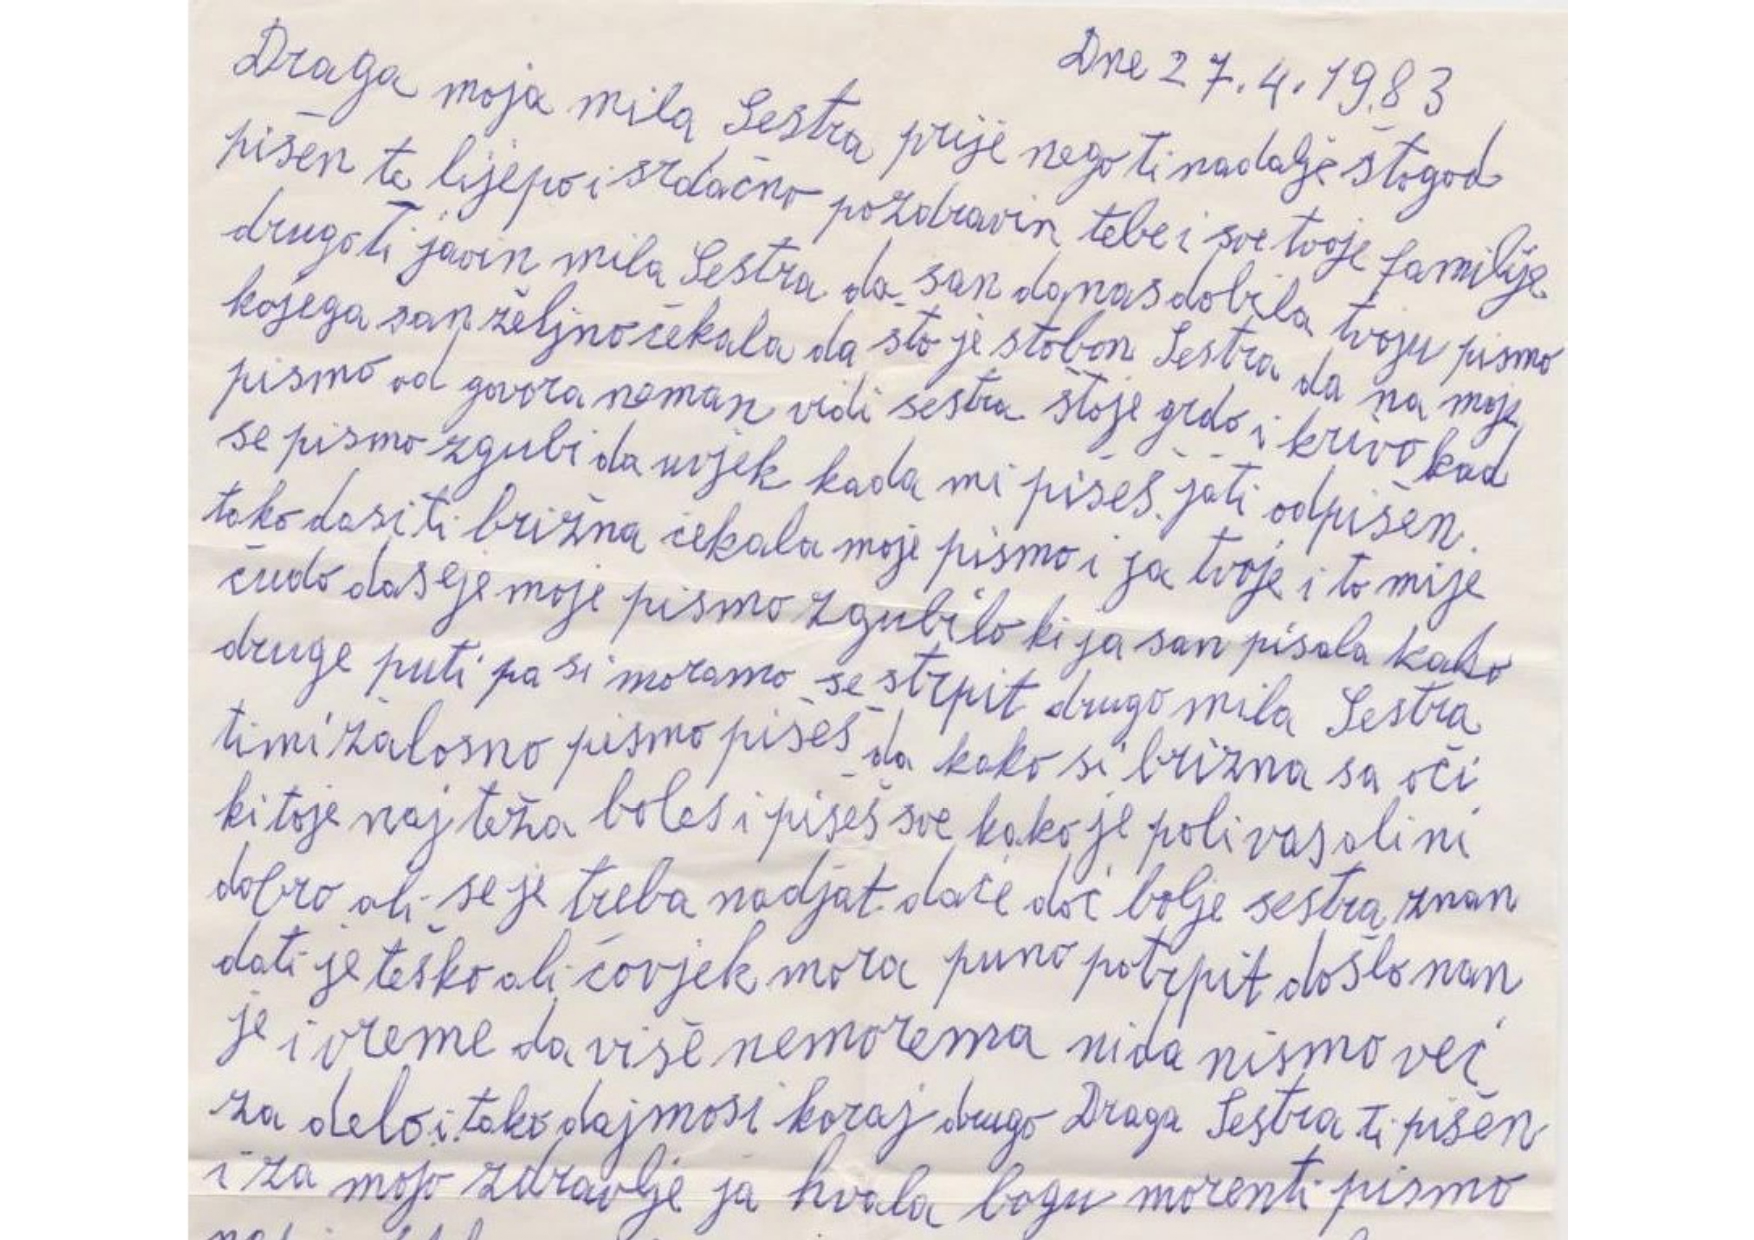 Dne 27.4.1983
Draga moja mila Sestra prije nego ti nadalje štogod
pišen te lijepo i srdačno pozdravin tebe i sve tvoje familije
drugo ti javin mila Sestra da san danas dobila tvoju pismo
kojega san željno čekala da što je stobon Sestra da na moje
pismo od govora neman vidi sestra štoje grdo i krivo kad
se pismo zgubi da uvjek kada mi pišeš jati odpišen.
tako dasi ti brižna čekala moje pismo i ja tvoje i to mije
čudo daseje moje pismo zgubilo ki ja san pisala kako
druge puti pa si moramo se strpit drugo mila Sestra
timi žalosno pismo pišeš da kako si brižna sa oči
ki toje naj teža boles i pišeš sve kako je poli vas ali ni
dobro ali se je treba nadjat daće doć bolje sestra znan
dati je teško ali čovjek mora puno potrpit došlo nan
je i vreme da više nemorema nida nismo već
za delo i tako dajmosi koraj drugo Draga Sestra ti pišen
i za mojo zdravlje ja hvala bogu morenti pismo